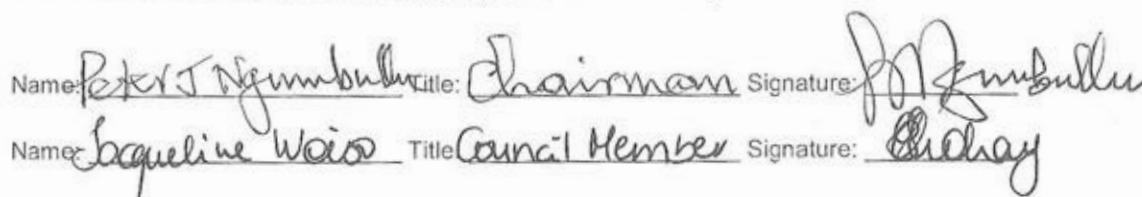 Name: Peter J Ngumbullu Title: Chairman Signature:
Name: Jacqueline Title: Council Member Signature: